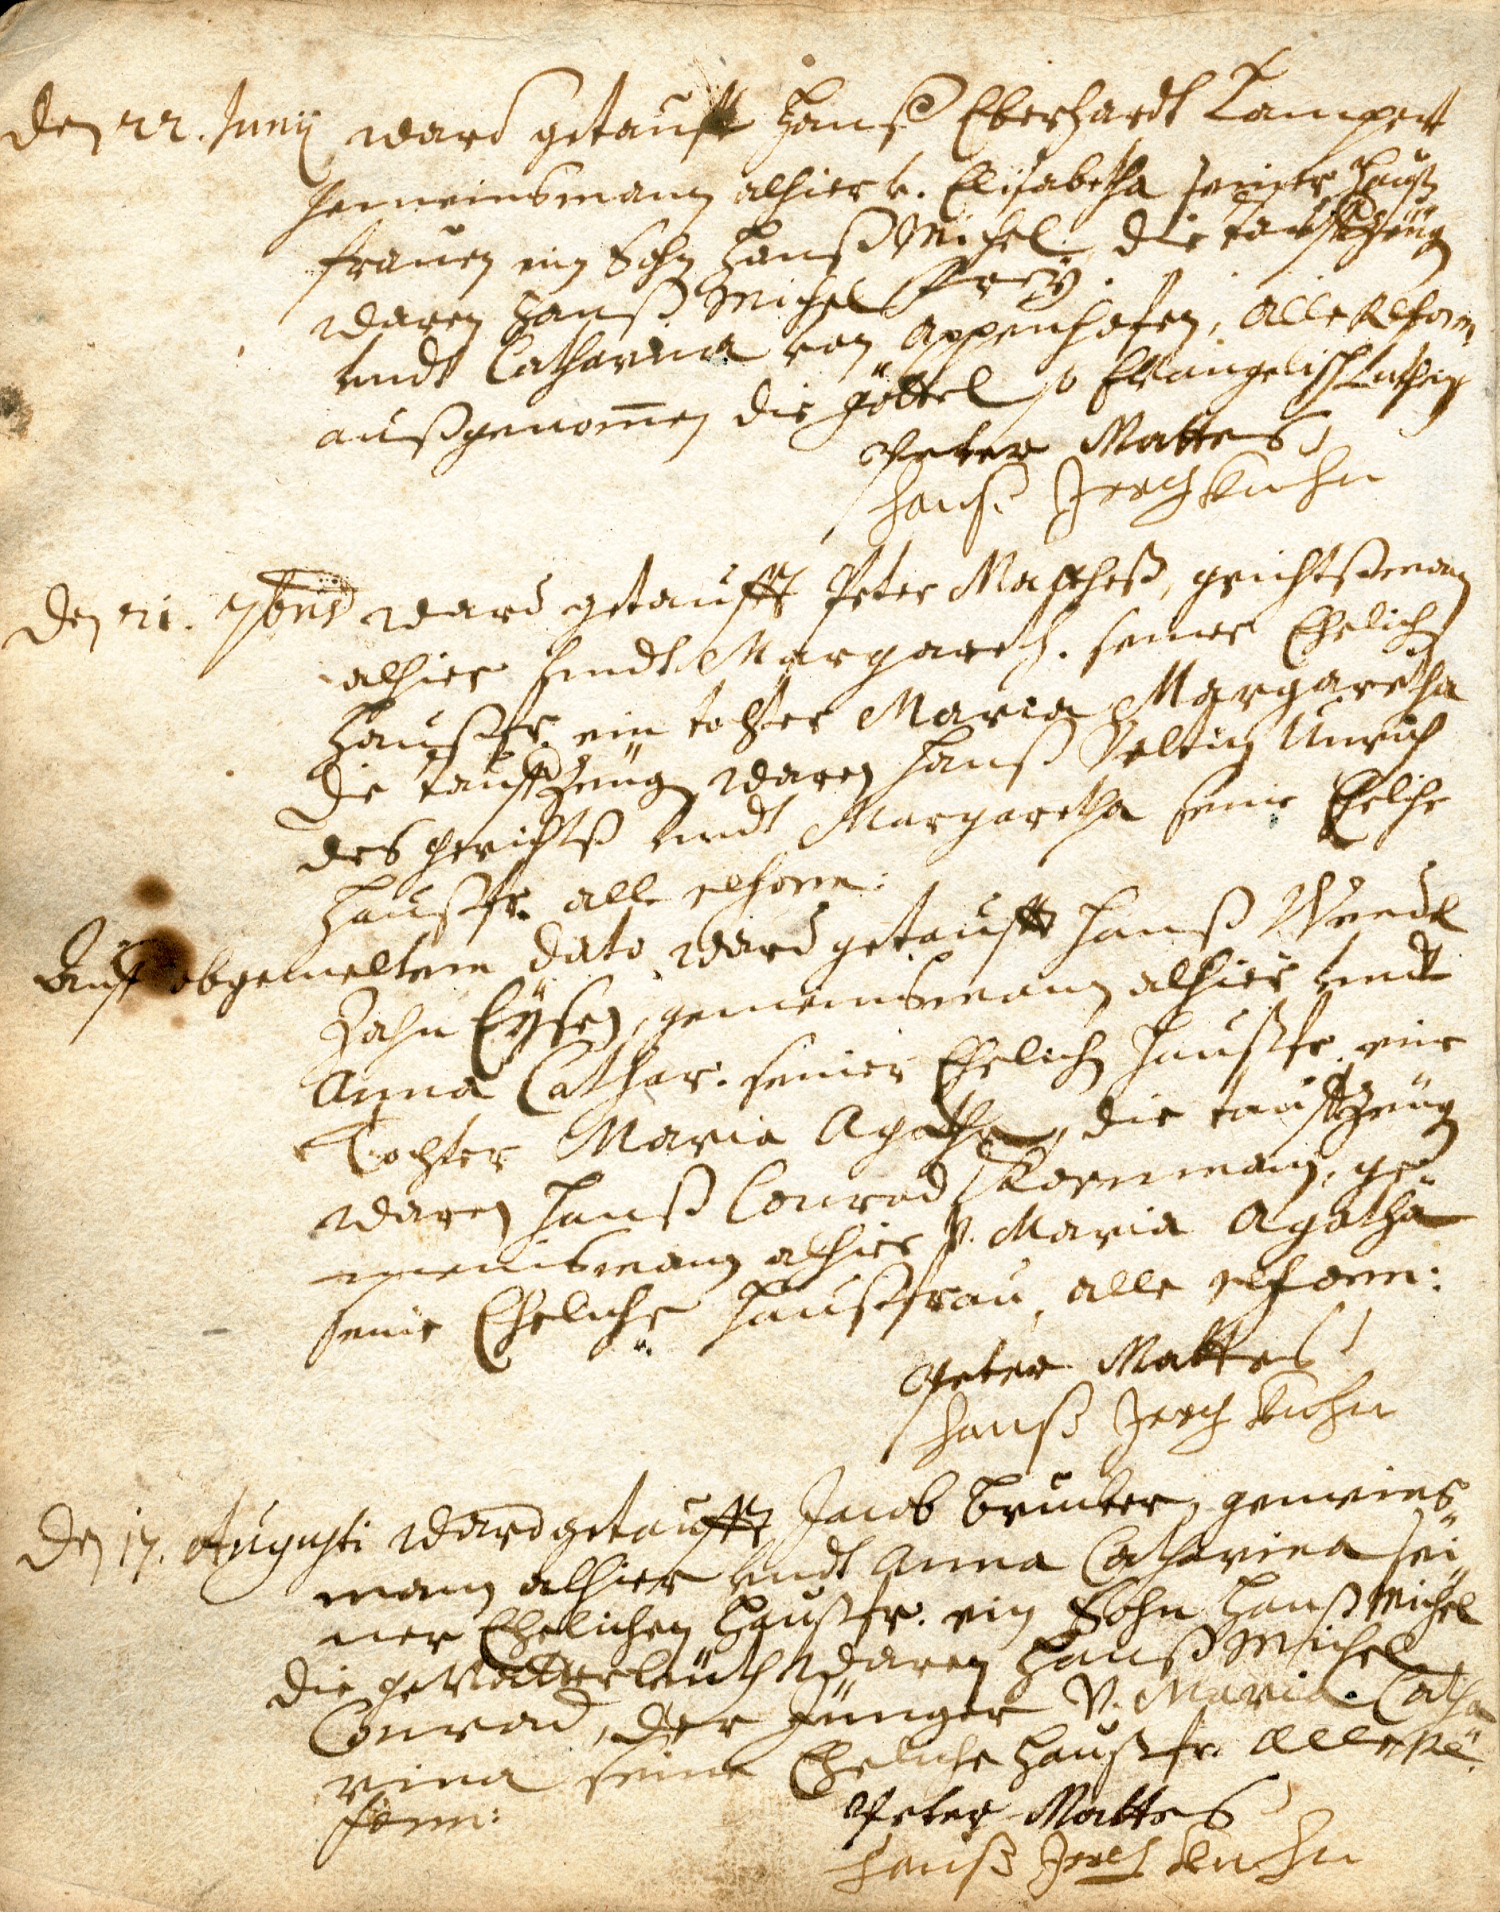 Den 22. Junij ward getaufft Hanß Eberhardt Lampert
gemeinsmann alhier v. Elisabetha seiner Hauß
frauen ein Sohn Hanß Michel. die tauffzeug
waren Hanß Michel Frey.
undt Catharina von Appenhofen, alle Reform
außgenom̅en die göttel so Evangelisch Luthersch
Peter Mattes
Hanß Jerch Kuhn
Den 21. 7bris ward getaufft Peter Mattheß, grichtßman
alhier undt Margareth. seiner Ehelich
Haußfr. ein tochter Maria Margaretha
die tauffzeug waren Hanß Veltin Unrich
des gerichtß undt Margaretha seine Eheliche
Haußfr. alle reform:
Auff obgemeltem dato ward getaufft Hanß Wendel
Zahn Eysen, gemeinsmann alhier undt
Anna Cathar. seiner Ehelich Haußfr. eine
Tochter Maria Agatha, die tauffzeug
waren Hanß Conrad Kornman, ge
meinsmann alhier v. Maria Agatha
seine Eheliche Haußfrau, alle reform:
Peter Mattes
Hanß Jerch Kuhn
Den 17. Augusti ward getaufft Jacob Brucker, gemeins
mann alhier undt Anna Catharina sei
ner Ehelichen Haußfr. ein Sohn Hanß Michel
die gevatterleuth waren Hanß Michel
Conrad, der Jünger v. Maria Catha
rina seine Eheliche Haußfr. alle Re
form:
Peter Mattes
Hanß Jerch Kuhn